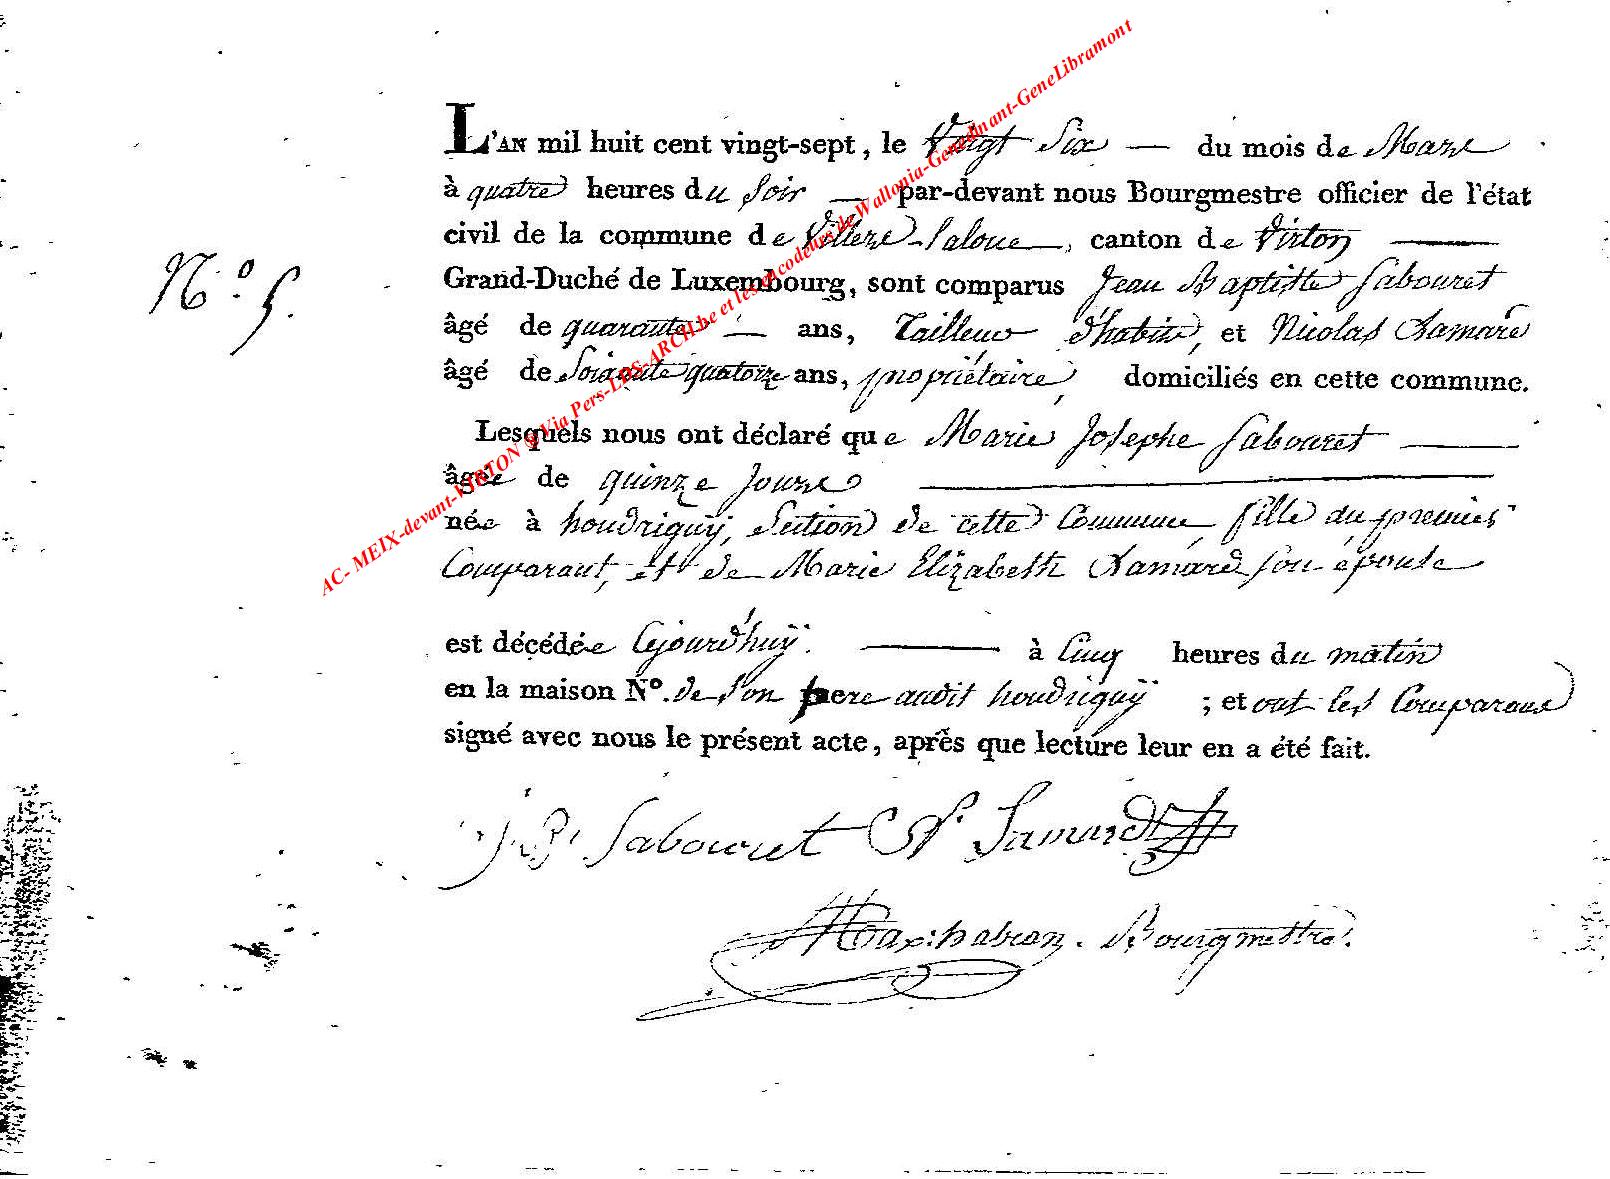 L'AN mil huit cent vingt-sept, le Vingt Six — du mois de Mars
à quatre heures du soir — par-devant nous Bourgmestre officier de l'état
civil de la commune de Villers-laloue, canton de Virton
N.º 5.
Grand-Duché de Luxembourg, sont comparus Jean Baptiste Sabouret
âgé de quarante — ans, Tailleur d'habits, et Nicolas Lamard
âgé de Soixante quatorze ans, propriétaire, domiciliés en cette commune.
Lesquels nous ont déclaré que Marie Josephe Sabouret —
âgée de quinze Jours
née à houdriguÿ, Section de cette Commune, fille du premier
Comparant, et de Marie Elizabeth Lamard son épouse
est décédée Cejourd'huÿ. — à Cinq heures du matin
en la maison Nº. de son pere audit houdriguÿ ; et ont les Comparans
signé avec nous le présent acte, après que lecture leur en a été fait.
J. B. Sabouret N. Lamard
Max: habran. Bourgmestre.
AC- MEIX-devant-VIRTON @ Via Pers-LDS-ARCH.be et les encodeurs de Wallonia-Genedinant-GeneLibramont